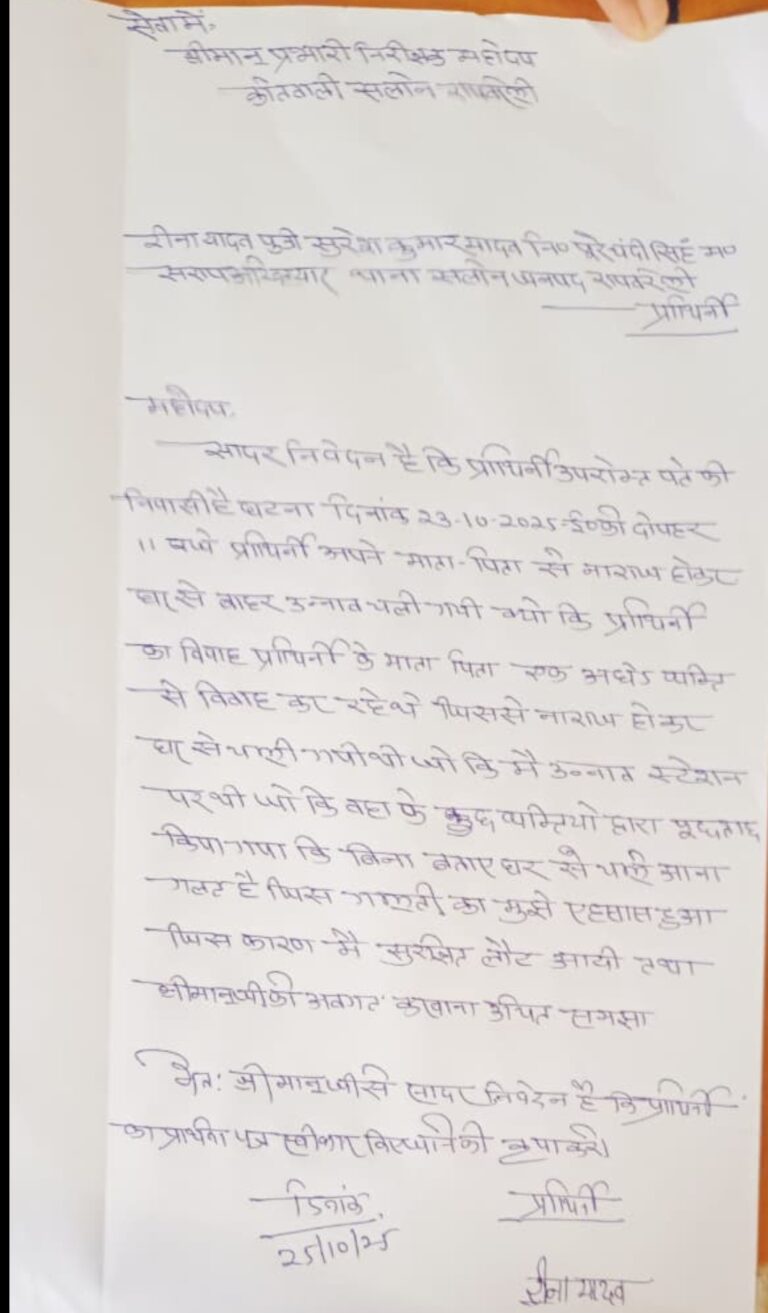 सेवा में,
श्रीमान् प्रभारी निरीक्षक महोदय
कोतवाली सलोन रायबरेली
रीना यादव पुत्री सुरेश कुमार यादव नि० पूरे चंदी सिंह म०
थाना सलोन जनपद रायबरेली
प्रार्थिनी
महोदय,
सादर निवेदन है कि प्रार्थिनी उपरोक्त पते की
निवासी है घटना दिनांक 23-10-2025 ई० की दोपहर
11 बजे प्रार्थिनी अपने माता-पिता से नाराज होकर
घर से बाहर उन्नाव चली गयी क्यो कि प्रार्थिनी
का विवाह प्रार्थिनी के माता पिता एक अधेड व्यक्ति
से विवाह कर रहे थे जिससे नाराज होकर
घर से चली गयी थी जो कि मै उन्नाव स्टेशन
पर थी जो कि वहा के कुछ व्यक्तियो द्वारा पूछताछ
किया गया कि बिना बताए घर से चले आना
गलत है जिस गलती का मुझे एहसास हुआ
जिस कारण मै सुरक्षित लौट आयी तथा
श्रीमान् जी को अवगत कराना उचित समझा
अत: श्रीमान् जी से सादर निवेदन है कि प्रार्थिनी
का प्रार्थना पत्र स्वीकार किए जाने की कृपा करे।
दिनांक, प्रार्थिनी
25/10/25
रीना यादव